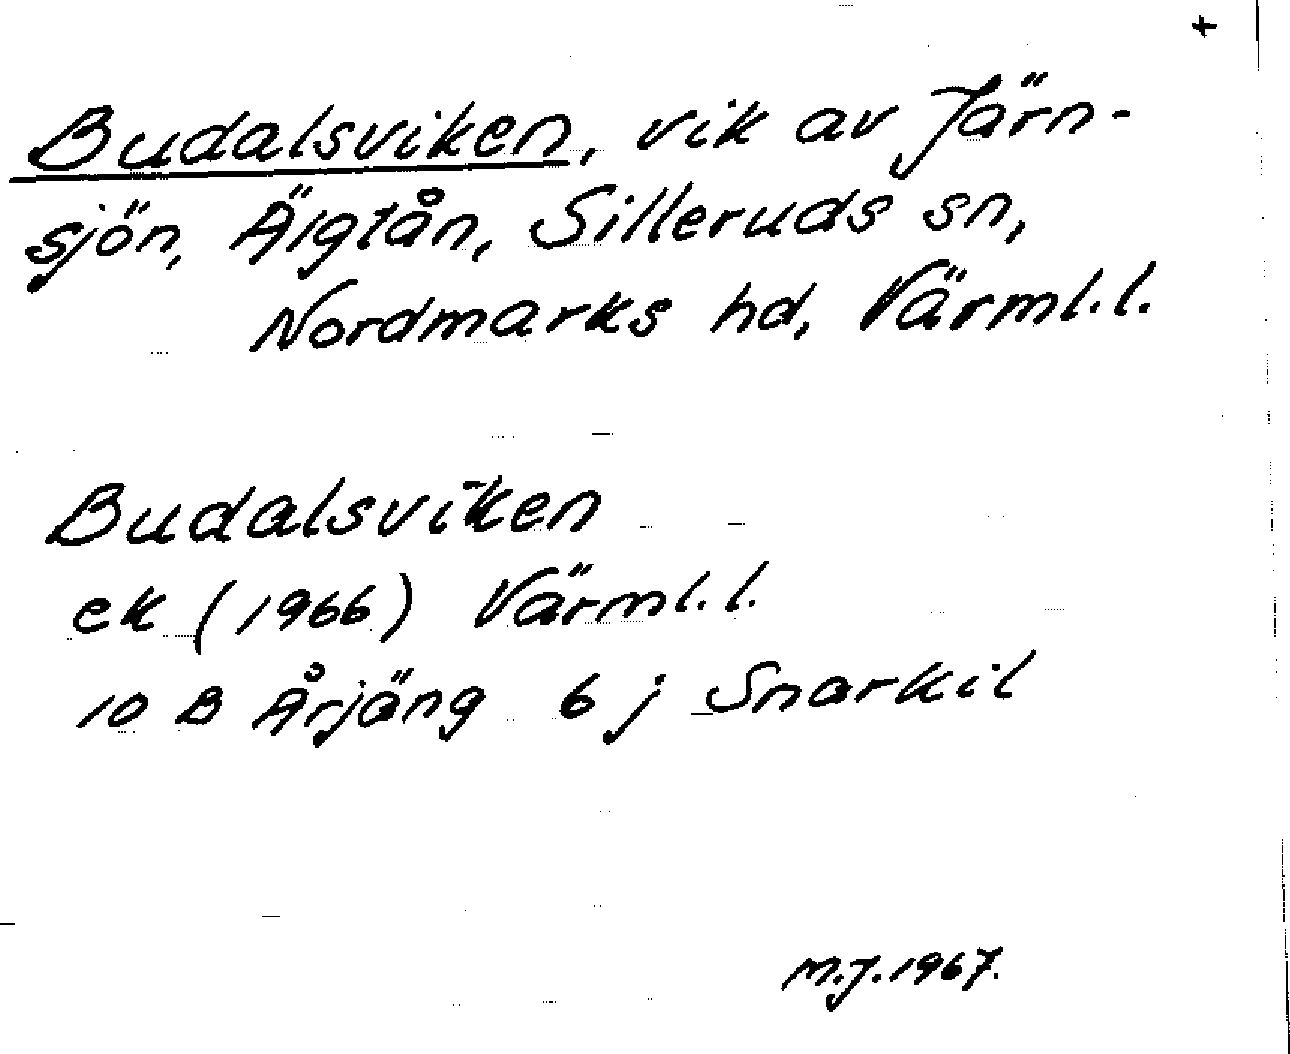 +
Budalsviken, vik av Järn-
sjön, Älgtån, Silleruds sn,
Nordmarks hd, Värml.l.
Budalsviken
ek (1966) Värml.l.
10 B Årjäng 6 j Snarkil
M.J. 1967.